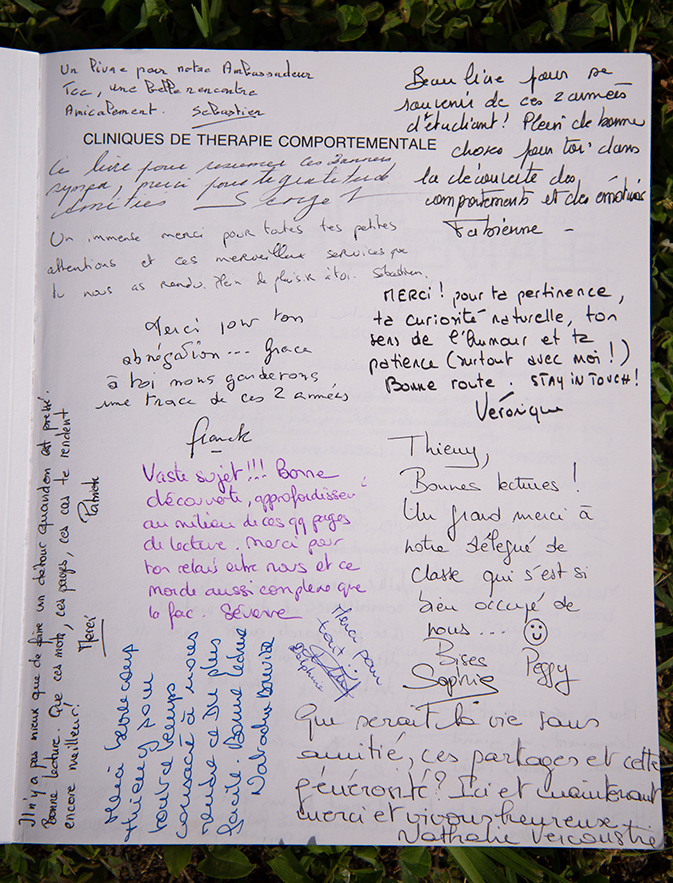 Un livre pour notre Ambassadeur
Tcc, une belle rencontre
Amicalement. Sébastien
Beau livre pour se
souvenir de ces 2 années
d'étudiant! Plein de bonne
choses pour toi dans
la découverte des
comportements et des émotions
Fabienne -
CLINIQUES DE THERAPIE COMPORTEMENTALE
Ce livre pour résumer ces
sympa, merci pour ta gratitude
Amitiés
Un immense merci pour toutes tes petites
attentions et ces merveilleux services que
tu nous as rendu. Plein de plaisir à toi. Sébastien.
MERCI! pour ta pertinence,
ta curiosité naturelle, ton
sens de l'humour et ta
patience (surtout avec moi!)
Bonne route. STAY IN TOUCH!
Véronique
Merci pour ton
abnégation... Grace
à toi nous garderons
une trace de ces 2 années
Franck
Thierry,
Bonnes lectures!
Un grand merci à
notre délégué de
classe qui s'est si
bien occupé de
nous...
Bises
Sophie
Peggy
Vaste sujet!!! Bonne
découverte, approfondissement
au milieu de ces 99 pages
de lecture. Merci pour
ton relais entre nous et ce
monde aussi complexe que
la fac. Séverine
Il n'y a pas mieux que de faire un détour quand on est pressé.
Bonne lecture. Que ces mots, ces pages, ces cas te rendent
encore meilleur!
Merci
Patrick
Merci beaucoup
Thierry pour
tout ce temps
consacré à nous
rendre ce DU plus
facile. Bonne lecture
Merci pour
tout!!
Delphine
Que serait la vie sans
amitié, ces partages et cette
générosité? Ici et maintenant
merci et vivons heureux.
Nathalie Vercoustre